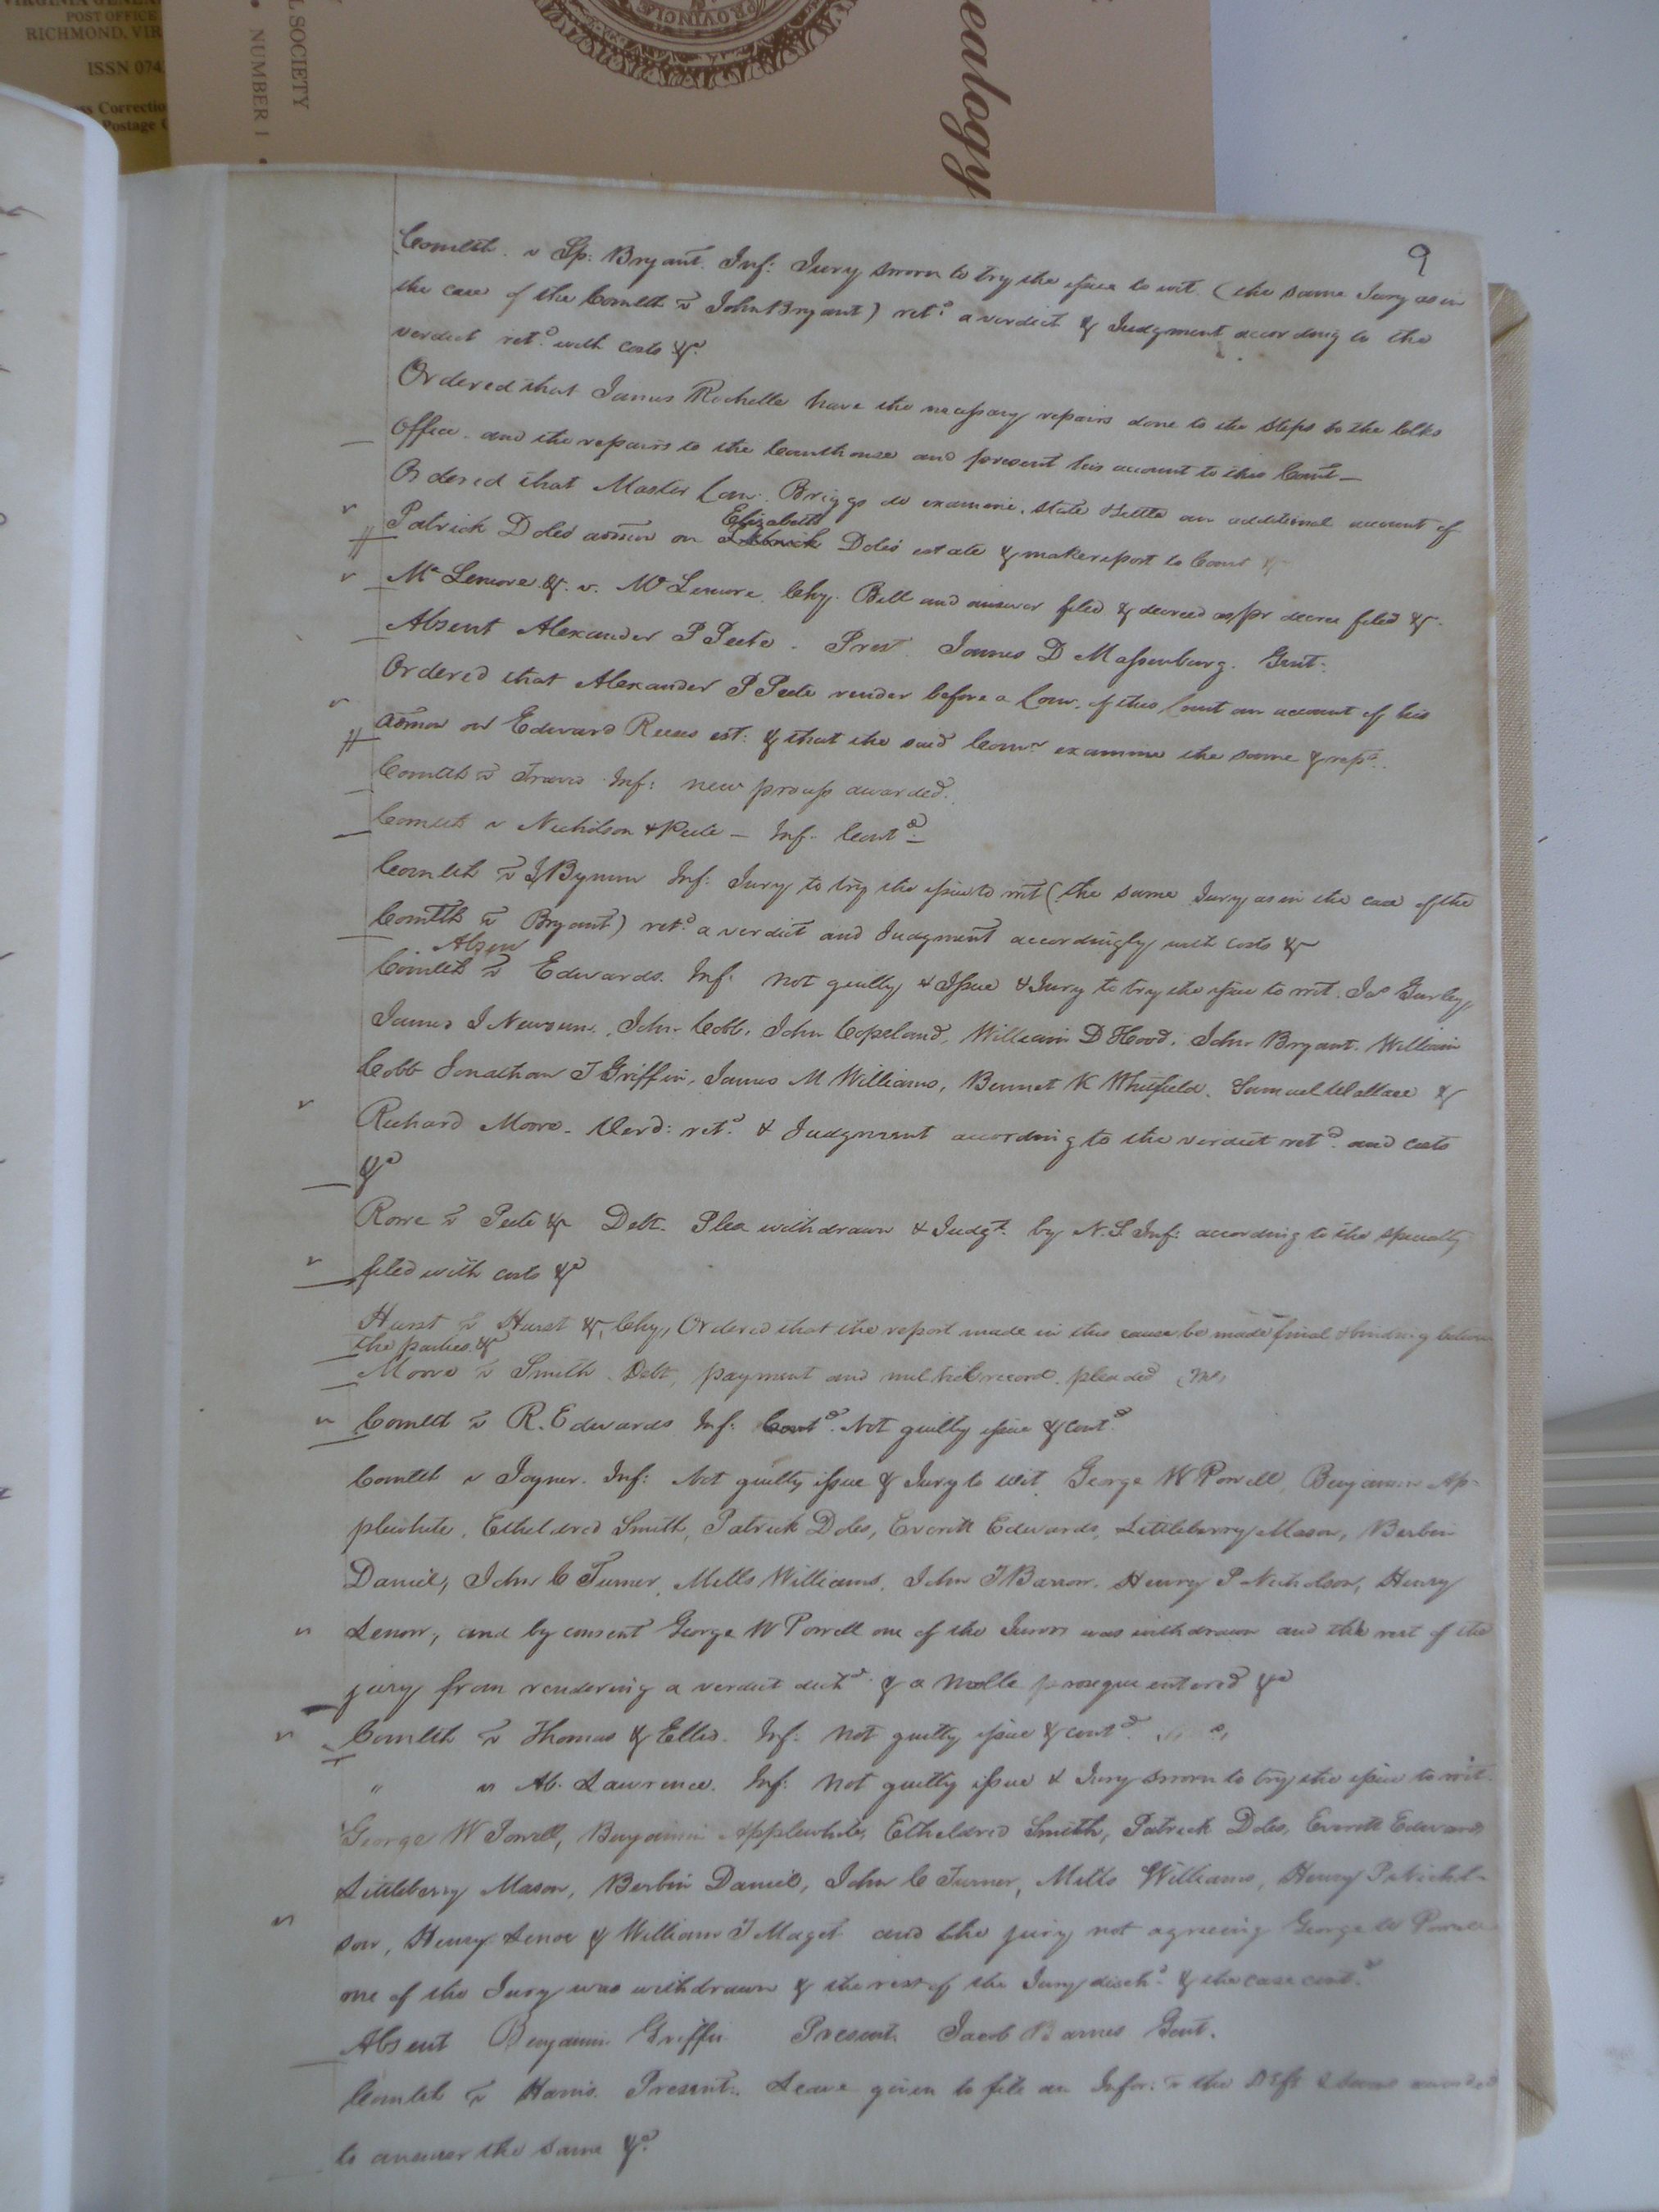 VIRGINIA GENEA
POST OFFICE
RICHMOND, VIR
ISSN 074
ss Correctio
Postage
L SOCIETY
NUMBER 1
PROVINCIÆ
ealogy
9
Comlth. v Sp: Bryant. Inf: Jury sworn to try the issue to wit. (the same Jury as in
the case of the Comlth v John Bryant) retd a verdict & Judgment according to the
verdict retd. with costs &c.
Ordered that James Rochelle have the necessary repairs done to the steps to the Clks
Office. and the repairs to the Courthouse and present his account to this Court—
Ordered that Master Com. Briggs do examine, state & settle an additional account of
Elizabeth
Patrick Doles admon on Doles' estate & make report to Court &
McLemore &. v. McLemore. Chy. Bill and answer filed & decreed as pr decree filed &.
Absent Alexander P Peete. Prest. James D Massenburg. Gent:
Ordered that Alexander P Peete render before a Com. of this Court an account of his
admon on Edward Reeses est: & that the said Comr examine the same & rept.
Comlth v Travis Inf: new process awarded.
Comlth v Nicholson & Peete — Inf. Contd.
Comlth v Bynum Inf: Jury to try the issue to wit (the same Jury as in the case of the
Comlth v Bryant) retd. a verdict and Judgment accordingly with costs &
Comlth v Edwards. Inf: not guilty & Issue & Jury to try the issue to wit. Jas Gurley,
James J Newsum, John Cobb, John Copeland, William D Hood, John Bryant, William
Cobb Jonathan T Griffin, James M Williams, Bennet K Whitfield, Samuel Wallace &
Richard Moore. Verd: retd. & Judgment according to the verdict retd. and costs
&c
Rowe v Peete & Debt. Plea withdrawn & Judgt. by N. S. Inf: according to the specialty
filed with costs &c
Hurst v Hurst &. Chy, Ordered that the report made in this cause be made final & binding between
the parties &
Moore v Smith. Debt, payment and nul tiel record. pleaded
Comlth v R. Edwards Inf: Contd. Not guilty issue & contd
Comlth v Joyner. Inf: Not guilty issue & Jury to wit. George W Powell, Benjamin Ap-
plewhite, Etheldred Smith, Patrick Doles, Everitt Edwards, Littleberry Mason, Berbin
Daniel, John C Turner, Mills Williams, John T Barron, Henry P Nicholson, Henry
Lenow, and by consent George W Powell one of the Jurors was withdrawn and the rest of the
jury from rendering a verdict & a Nolle proseque entered &c
Comlth v Thomas & Ellis. Inf. Not guilty issue & contd.
" v Ab. Lawrence. Inf: Not guilty issue & Jury sworn to try the issue to wit.
George W Powell, Benjamin Applewhite, Etheldred Smith, Patrick Doles, Everitt Edwards
Littleberry Mason, Berbin Daniel, John C Turner, Mills Williams, Henry P Nichol-
son, Henry Lenow & William T Maget and the jury not agreeing George W Powell
one of the Jury was withdrawn & the rest of the Jury disch. & the case contd.
Absent Benjamin Griffin Present. Jacob Barnes Gent.
Comlth v Harris. Present. Leave given to file an Infor: v the Deft & awarded
to answer the same &c.